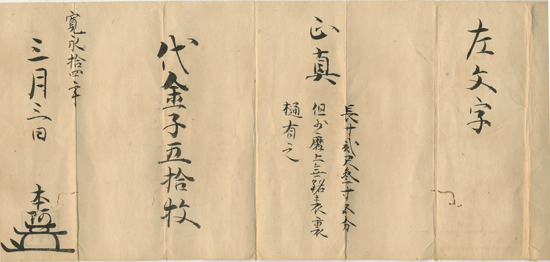 左文字
正真
長サ貳尺叁寸五分
但少磨上無銘表裏
樋有之
代金子五拾枚
寛永拾四年
三月三日
本阿